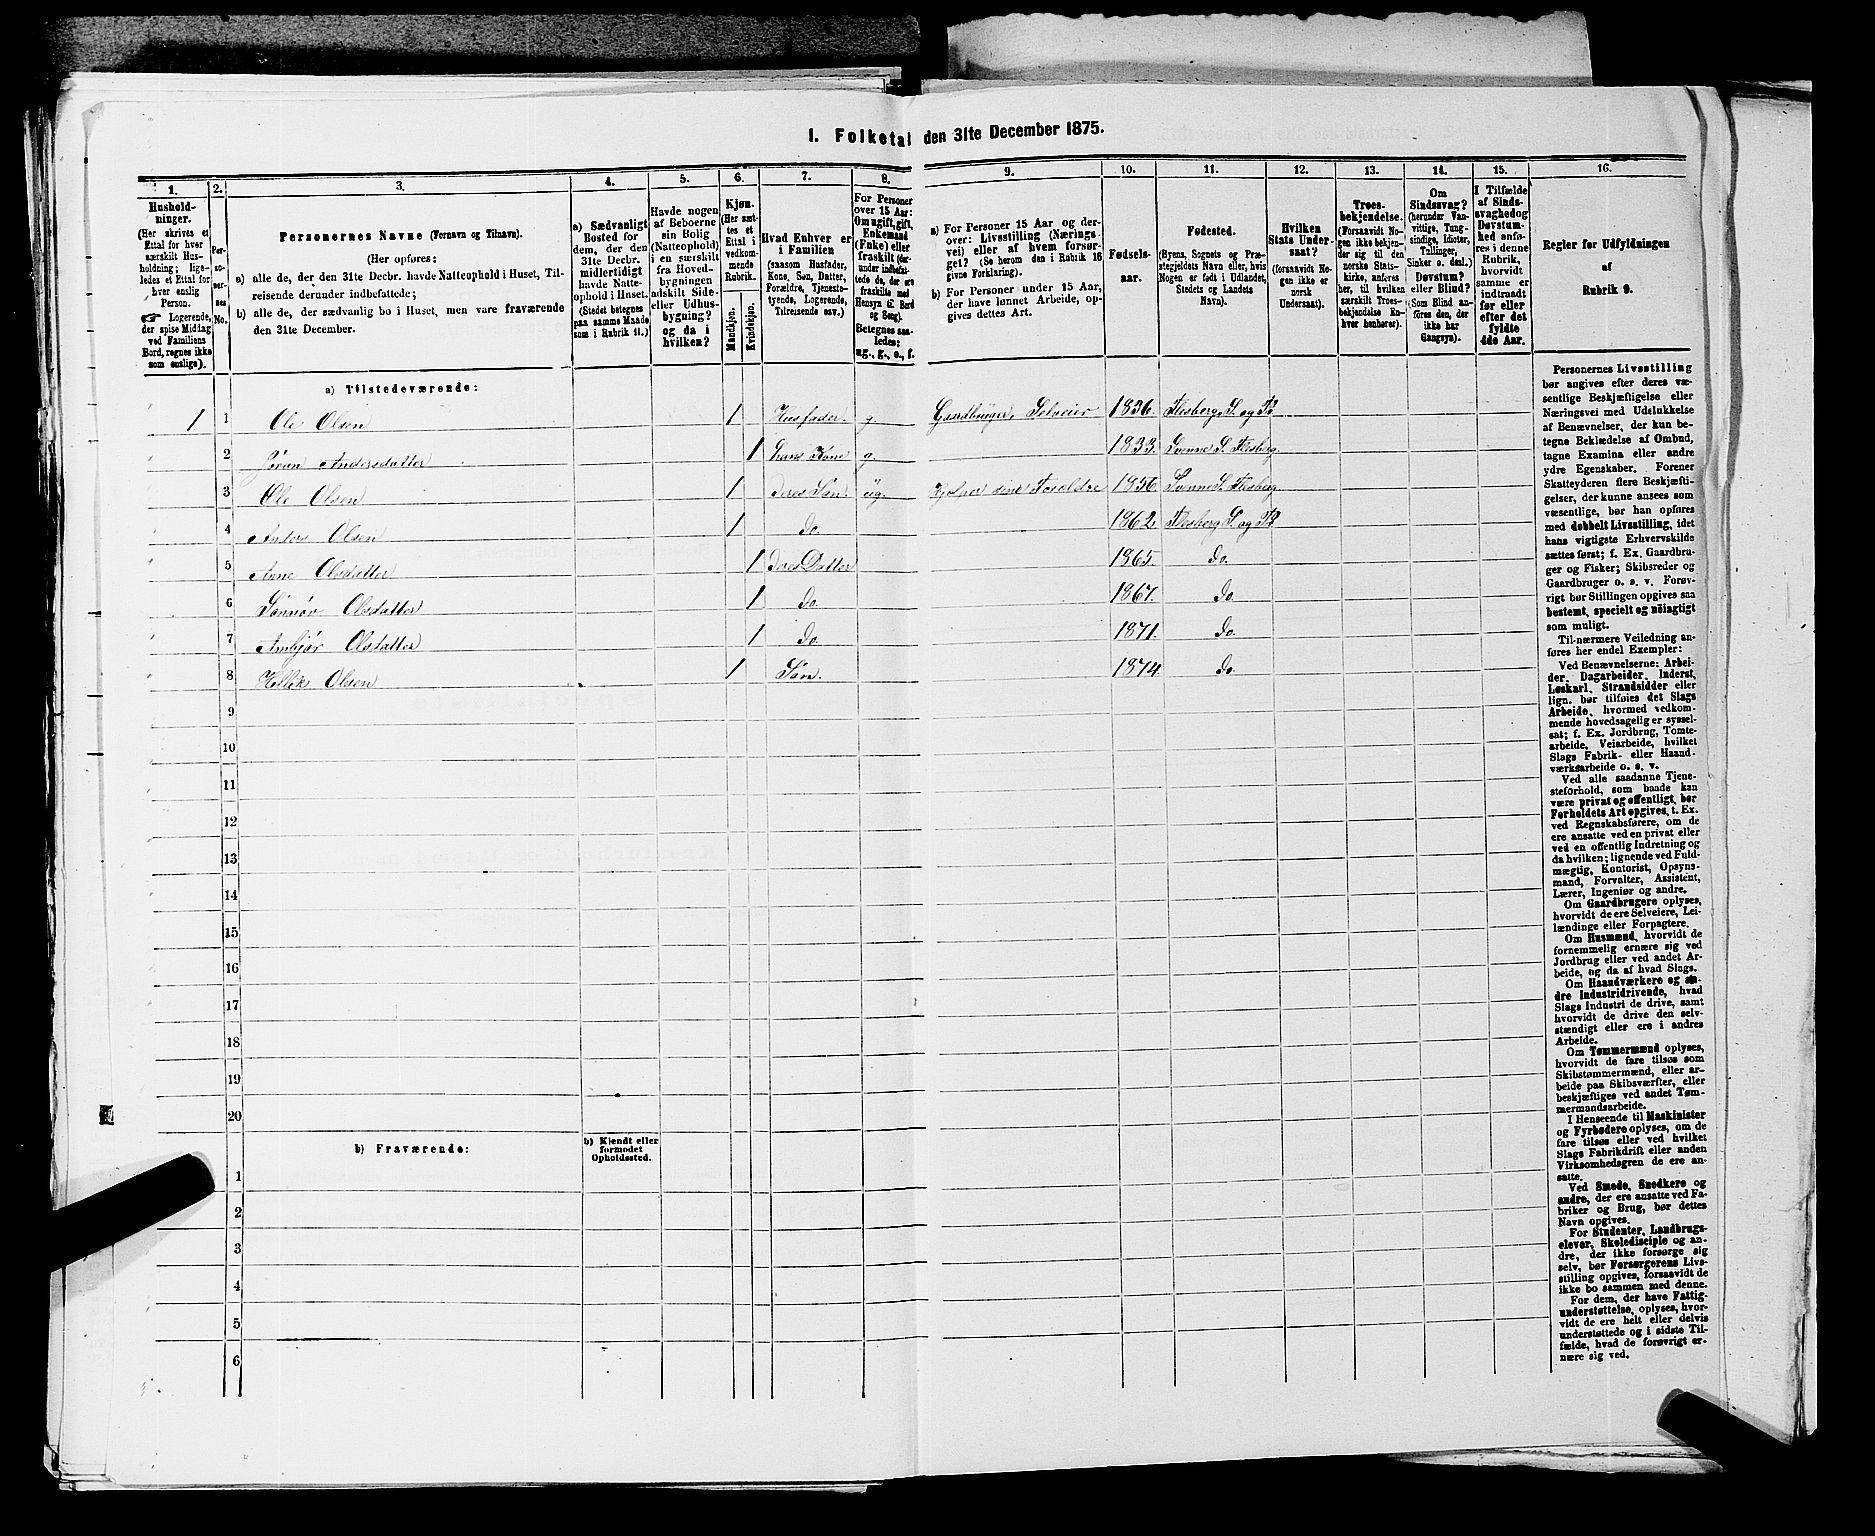 1. Folketal den 31te December 1875.
1. 2. 3. 4. 5. 6. 7. 8. 9. 10. 11. 12. 13. 14. 15. 16.
Hushold-
ninger.
(Her skrives et
Ettal for hver
særskilt Hus-
holdning; lige-
ledes et Ettal for
hver enslig
Person.
☞ Logerende,
der spise Middag
ved Familiens
Bord, regnes ikke
som enslige).
Per-
so-
ner-
nes
No.
Personernes Navne (Fornavn og Tilnavn).
(Her opføres:
a) alle de, der den 31te Decbr. havde Natteophold i Huset, Til-
reisende derunder indbefattede;
b) alle de, der sædvanlig bo i Huset, men vare fraværende
den 31te December.
a) Sædvanligt
Bosted for
dem, der den
31te Decbr.
midlertidigt
havde Natte-
ophold i Huset.
(Stedet betegnes
paa samme Maade
som i Rubrik 11.)
Havde nogen
af Beboerne
sin Bolig
(Natteophold)
i en særskilt
fra Hoved-
bygningen
adskilt Side-
eller Udhus-
bygning?
og da i
hvilken?
Kjøn.
(Her sæt-
tes et
Ettal i
vedkom-
mende
Rubrik.
Mandkjøn.
Kvindekjøn.
Hvad Enhver er
i Familien
(saasom Husfader,
Kone, Søn, Datter,
Forældre, Tjeneste-
tyende, Logerende,
Tilreisende osv.)
For Personer
over 15 Aar:
Om ugift, gift,
Enkemand
(Enke) eller
fraskilt (der-
under indbefat-
tede de, der ere
fraskilte med
Hensyn til Bord
og Seng).
Betegnes saa-
ledes:
ug., g., e., f.
a) For Personer 15 Aar og der-
over: Livsstilling (Nærings-
vei) eller af hvem forsør-
get? (Se herom den i Rubrik 16
givne Forklaring).
b) For Personer under 15 Aar,
der have lønnet Arbeide, op-
gives dettes Art.
Fødsels-
aar.
Fødested.
(Byens, Sognets og Præ-
stegjeldets Navn eller, hvis
Nogen er født i Udlandet,
Stedets og Landets
Navn).
Hvilken
Stats Under-
saat?
(forsaavidt No-
gen ikke er
norsk
Undersaat).
Troes-
bekjendelse.
(Forsaavidt No-
gen ikke bekjen-
der sig til den
norske Stats-
kirke, anføres
her, til hvilken
særskilt Troes-
bekjendelse En-
hver henhører).
Om
Sindssvag?
(herunder Van-
vittige, Tung-
sindige, Idioter,
Tullinger,
Sinker o. desl.)
Døvstum?
eller Blind?
(Som Blind an-
føres den, der
ikke har
Gangsyn).
I Tilfælde
af Sinds-
svaghed og
Døvstum-
hed anfø-
res i denne
Rubrik,
hvorvidt
samme er
indtraadt
før eller
efter det
fyldte
4de Aar.
Regler for Udfyldningen
af
Rubrik 9.
a) Tilstedeværende:
1 1 Ole Olsen 1 Husfader g. Gaardbruger, Selveier 1836. Flesberg, S. og P.
2 Jøran Andersdatter 1 Hans Kone g. 1833. Svenne S. Flesberg.
3 Ole Olsen 1 deres Søn. ug. Hjelper sine Forældre 1856. Svenne S. Flesberg.
4 Anders Olsen 1 do. 1862. Flesberg S. og P.
5 Anne Olsdatter 1 deres Datter 1865. do.
6 Sønnøv Olsdatter 1 do. 1867. do.
7 Ambjør Olsdatter 1 do. 1871. do.
8 Hellik Olsen 1 Søn. 1874. do.
9
10
11
12
13
14
15
16
17
18
19
20
b) Fraværende:
b) Kjendt eller
formodet
Opholdssted.
1
2
3
4
5
6
Personernes Livsstilling
bør angives efter deres væ-
sentlige Beskjæftigelse eller
Næringsvei med Udelukkelse
af Benævnelser, der kun be-
tegne Beklædelse af Ombud,
tagne Examina eller andre
ydre Egenskaber. Forener
Skatteyderen flere Beskjæfti-
gelser, der kunne ansees som
væsentlige, bør han opføres
med dobbelt Livsstilling, idet
hans vigtigste Erhvervskilde
sættes først; f. Ex. Gaardbru-
ger og Fisker; Skibsreder og
Gaardbruger o. s. v. Forøv-
rigt bør Stillingen opgives saa
bestemt, specielt og nøiagtigt
som muligt.
Til nærmere Veiledning an-
føres her endel Exempler:
Ved Benævnelserne: Arbei-
der, Dagarbeider, Inderst,
Løskarl, Strandsidder eller
lign. bør tilføies det Slags
Arbeide, hvormed vedkom-
mende hovedsagelig er syssel-
sat; f. Ex. Jordbrug, Tomte-
arbeide, Veiarbeide, hvilket
Slags Fabrik- eller Haand-
værksarbeide o. s. v.
Ved alle saadanne Tjene-
steforhold, som baade kan
være privat og offentligt, bør
Forholdets Art opgives, t. Ex.
ved Regnskabsførere, om de
ere ansatte ved en privat eller
ved en offentlig Indretning og
da hvilken; lignende ved Fuld-
mægtig, Kontorist, Opsyns-
mand, Forvalter, Assistent,
Lærer, Ingeniør og andre.
Om Gaardbrugere oplyses,
hvorvidt de ere Selveiere, Lei-
lændinge eller Forpagtere.
Om Husmænd, hvorvidt de
fornemmelig ernære sig ved
Jordbrug eller ved andet Ar-
beide, og da af hvad Slags.
Om Haandværkere og an-
dre Industridrivende, hvad
Slags Industri de drive, samt
hvorvidt de drive den selv-
stændigt eller ere i andres
Arbeide.
Om Tømmermænd oplyses,
hvorvidt de fare tilsøs som
Skibstømmermænd, eller ar-
beide paa Skibsværfter, eller
beskjæftiges ved andet Tøm-
mermandsarbeide.
I Henseende til Maskinister
og Fyrbødere oplyses, om de
fare tilsøs eller ved hvilket
Slags Fabrikdrift eller anden
Virksomhedsgren de ere an-
satte.
Ved Smede, Snedkere og
andre, der ere ansatte ved Fa-
briker og Brug, bør dettes
Navn opgives.
For Studenter, Landbrugs-
elever, Skoledisciple og an-
dre, der ikke forsørge sig
selv, bør Forsørgerens Livs-
stilling opgives, forsaavidt de
ikke bo sammen med denne.
For dem, der have Fattig-
understøttelse, oplyses, hvor-
vidt de ere helt eller delvis
understøttede og i sidste Til-
fælde, hvad de forøvrigt er-
nære sig ved.